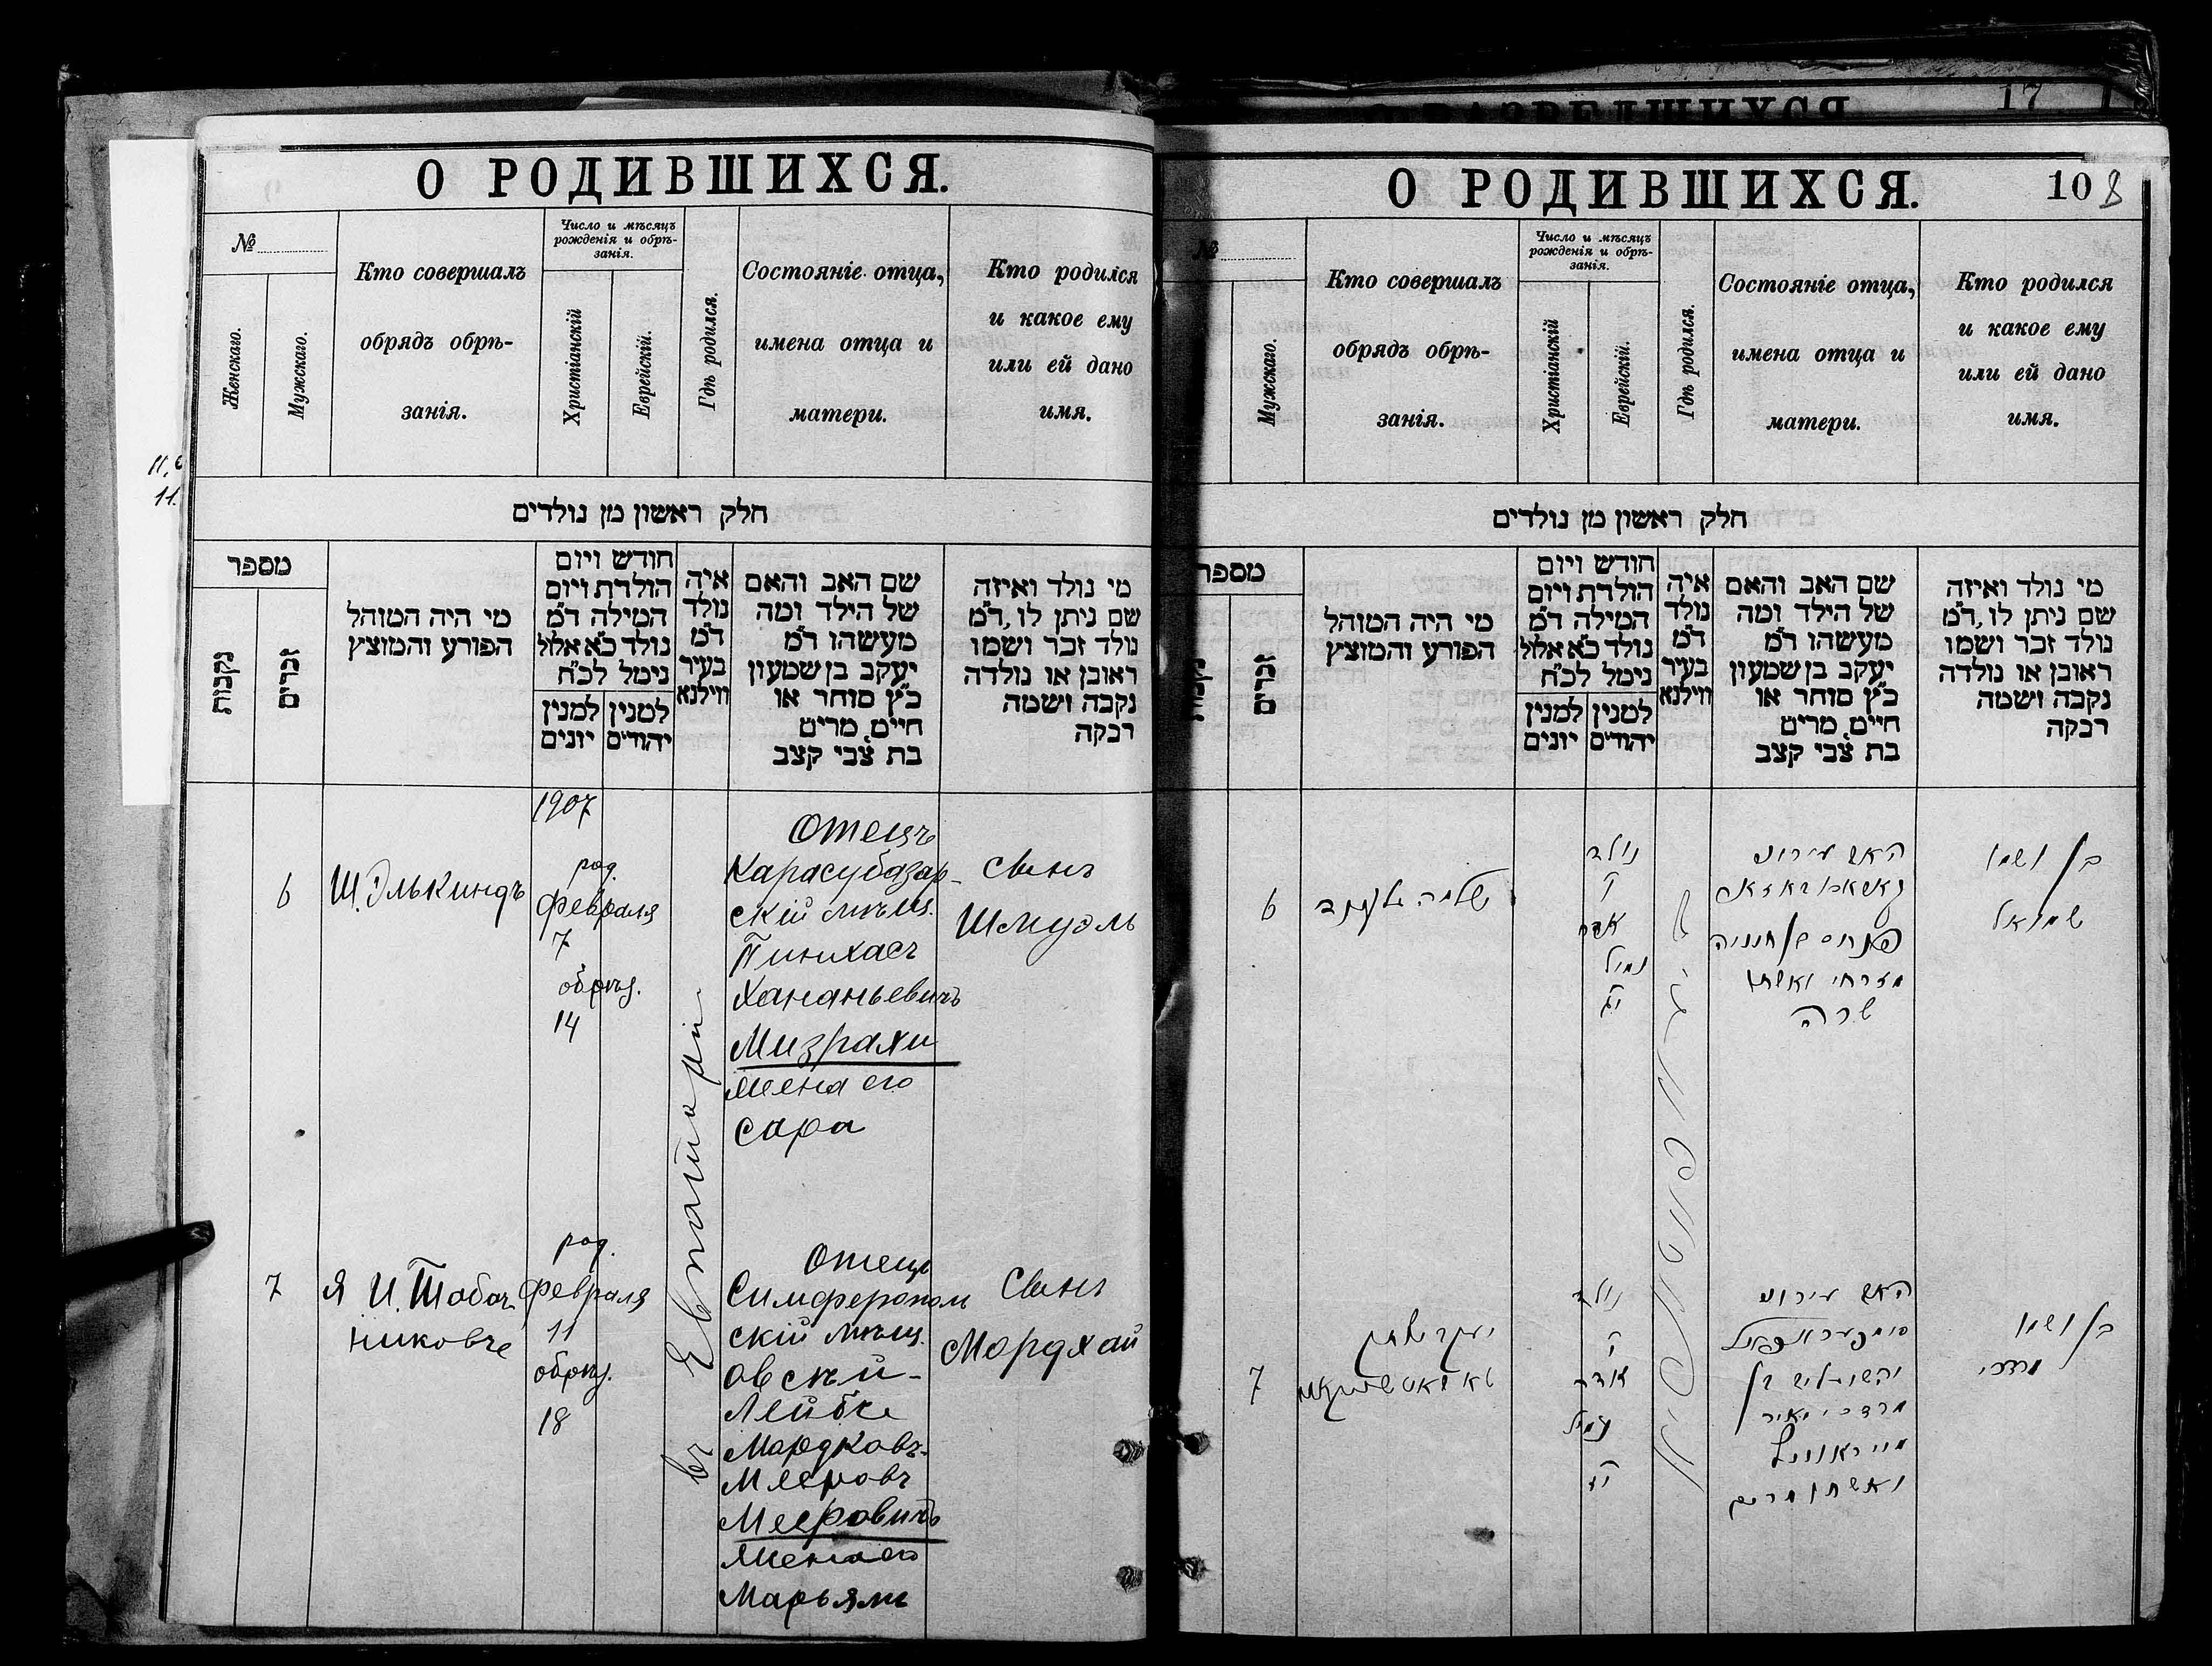 О РОДИВШИХСЯ.
№
Женскаго.
Мужскаго.
Кто совершалъ
обрядъ обрѣ-
занія.
Число и мѣсяцъ
рожденія и обрѣ-
занія.
Христіанскій
Еврейскій.
Гдѣ родился.
Состояніе отца,
имена отца и
матери.
Кто родился
и какое ему
или ей дано
имя.
חלק ראשון מן נולדים
מספר
נקבות
זכרים
מי היה המוהל
הפורע והמוצץ
חודש ויום
הולדת ויום
המילה ד״מ
נולד כ״א אלול
נימל לכ״ח
למנין
יהודים
למנין
יונים
איה
נולד
ד״מ
בעיר
ווילנא
שם האב והאם
של הילד ומה
מעשהו ד״מ
יעקב בן שמעון
כ״ץ סוחר או
חיים, מרים
בת צבי קצב
מי נולד ואיזה
שם ניתן לו, ד״מ
נולד זכר ושמו
ראובן או נולדה
נקבה ושמה
רבקה
1907
6
Ш. Элькиндъ
род.
февраля
7
обрѣз.
14
въ Евпаторіи
Отецъ
Карасубазар-
скій мѣщ.
Пинхасъ
Хананьевичъ
Мизрахи
жена его
Сара
Сынъ
Шмуэль
7
Я И. Табач-
никовъ
род.
февраля
11
обрѣз.
18
Отецъ
Симферопол
скій мѣщ.
Лейбъ
Мордковъ-
Мееровъ
Мееровичъ
жена его
Марьямъ
Сынъ
Мордхай
17
О РОДИВШИХСЯ.
10 8
№
Мужскаго.
Кто совершалъ
обрядъ обрѣ-
занія.
Число и мѣсяцъ
рожденія и обрѣ-
занія.
Христіанскій
Еврейскій.
Гдѣ родился.
Состояніе отца,
имена отца и
матери.
Кто родился
и какое ему
или ей дано
имя.
חלק ראשון מן נולדים
מספר
נקבות
זכרים
מי היה המוהל
הפורע והמוצץ
חודש ויום
הולדת ויום
המילה ד״מ
נולד כ״א אלול
נימל לכ״ח
למנין
יהודים
למנין
יונים
איה
נולד
ד״מ
בעיר
ווילנא
שם האב והאם
של הילד ומה
מעשהו ד״מ
יעקב בן שמעון
כ״ץ סוחר או
חיים, מרים
בת צבי קצב
מי נולד ואיזה
שם ניתן לו, ד״מ
נולד זכר ושמו
ראובן או נולדה
נקבה ושמה
רבקה
6
שלמה עלקינד
נולד
אדר
נמול
האב עירוני
פנחס בן חנניה
מזרחי ואשתו
שרה
בן ושמו
שמואל
7
יעקב
נולד
אדר
נמול
האב עירוני
מרדכי מאיר
מייראוויץ
ואשתו מרים
בן ושמו
מרדכי